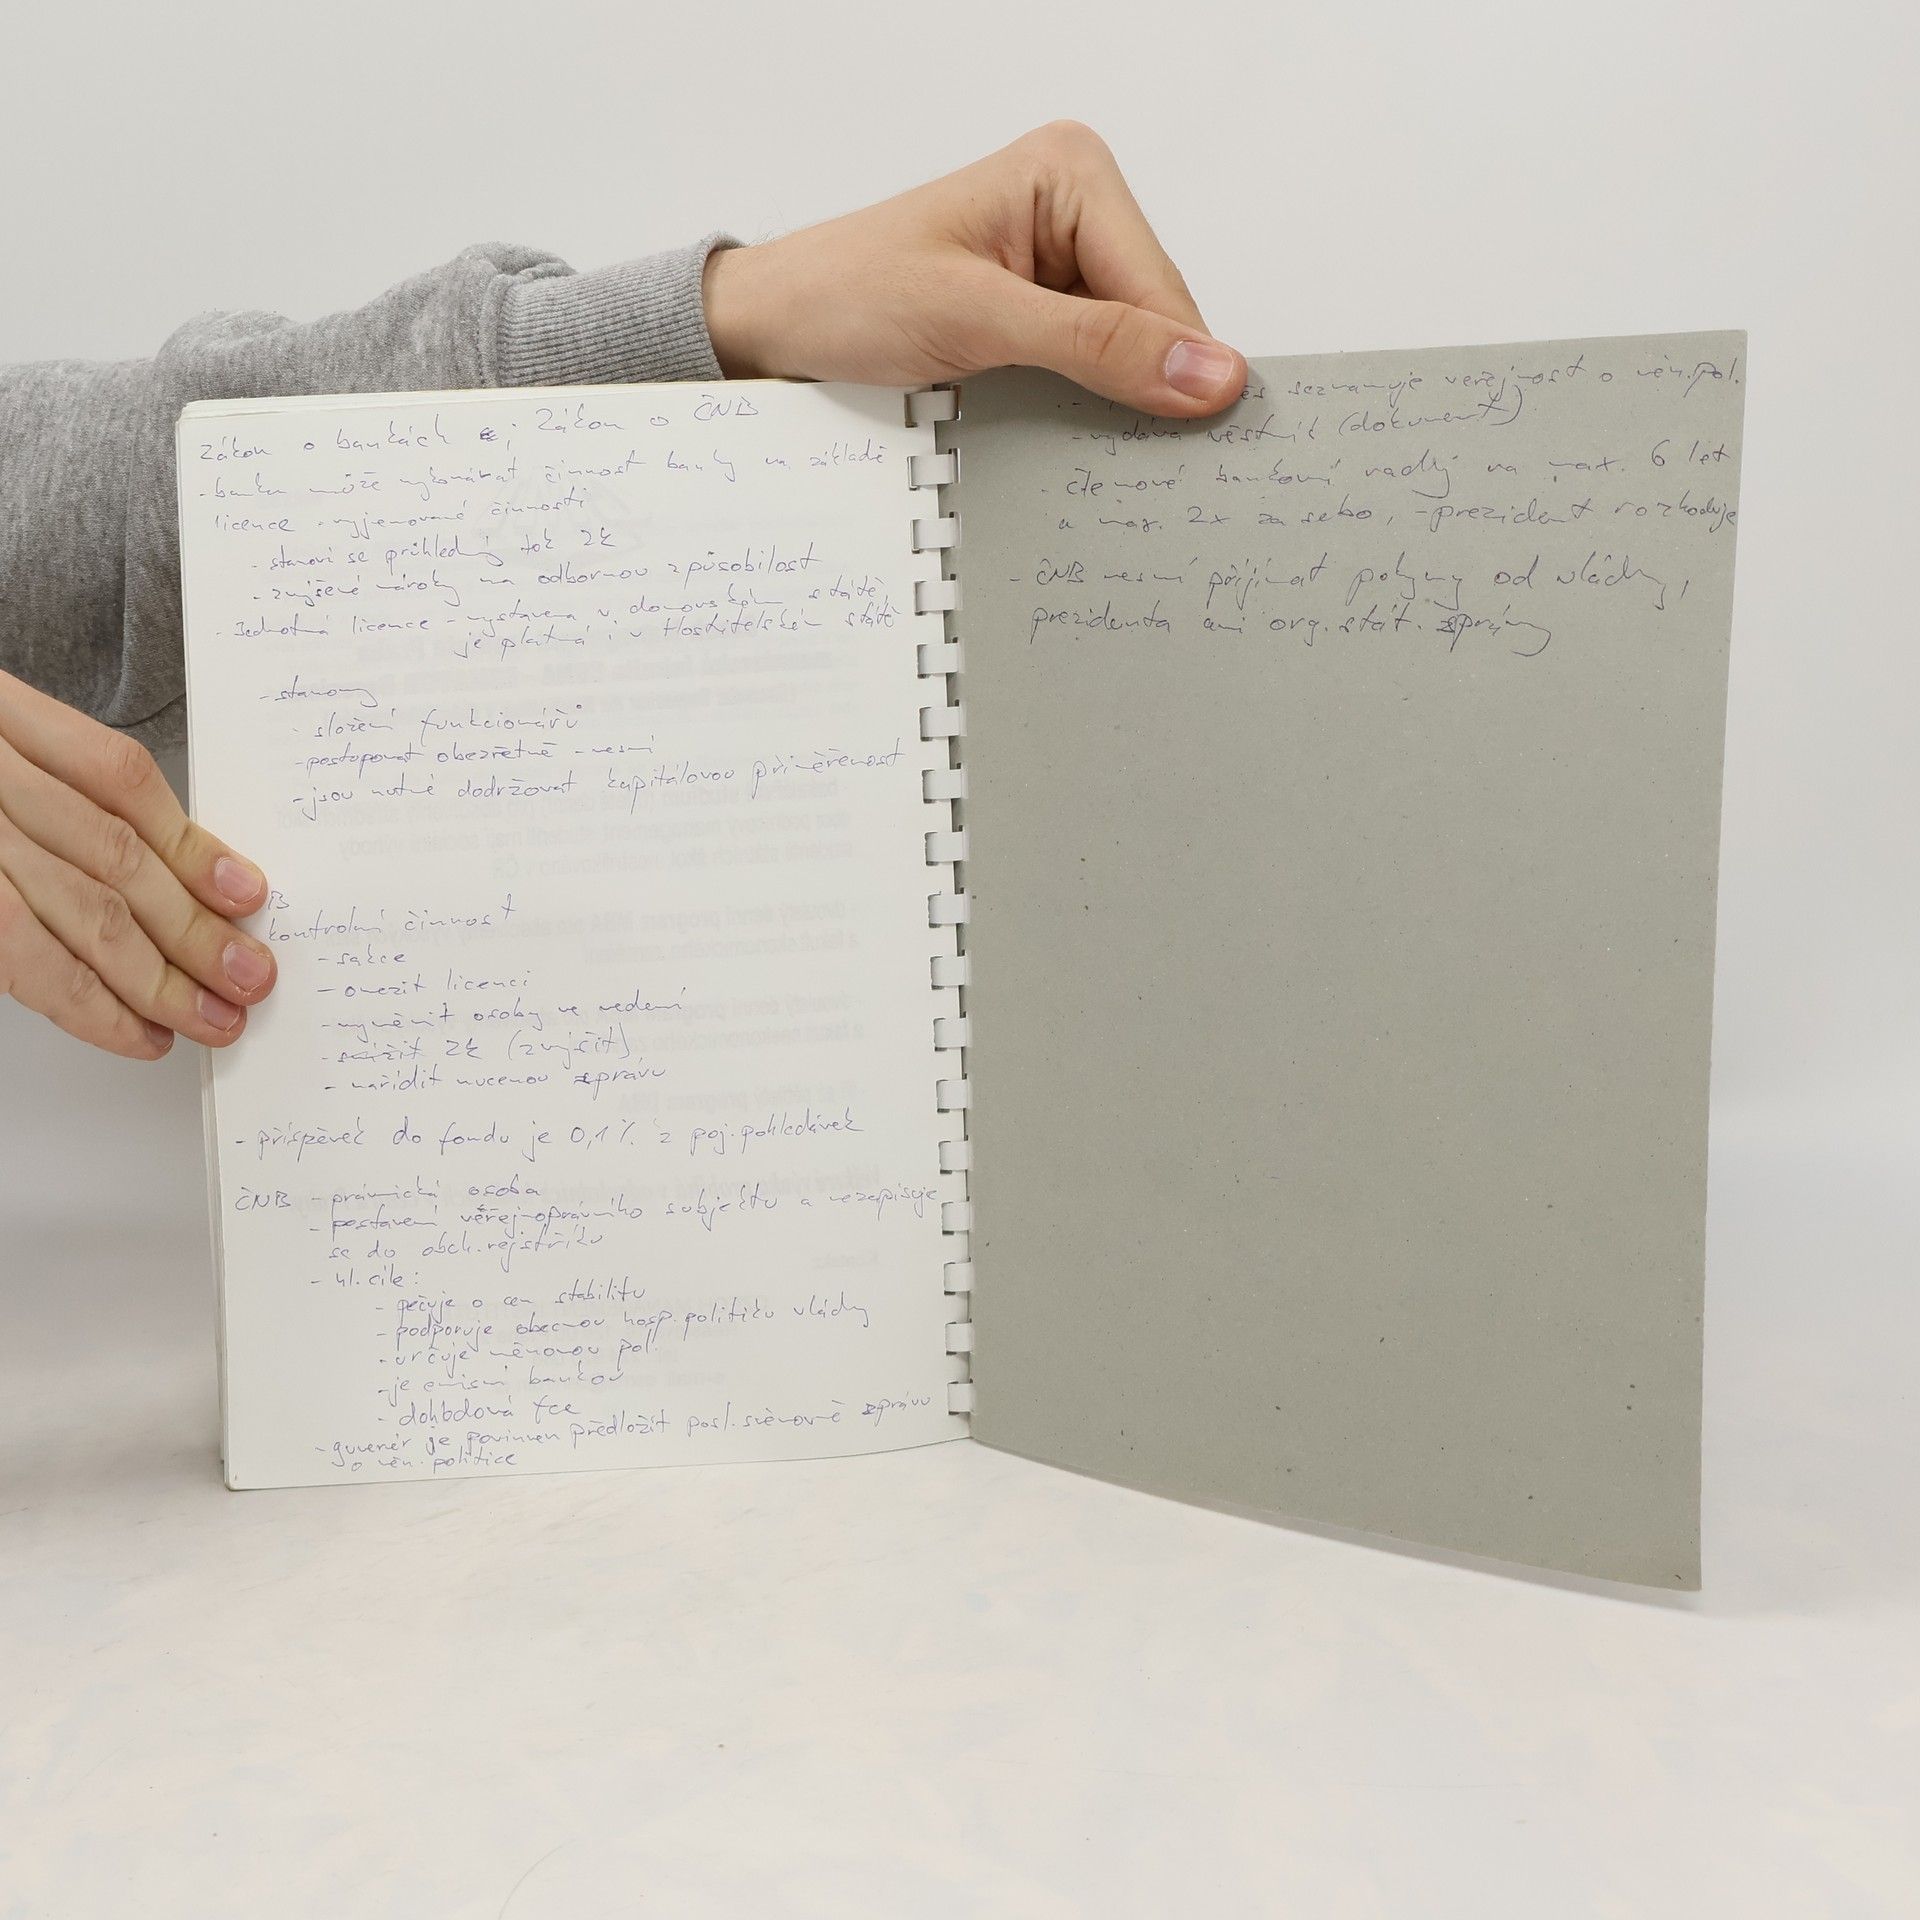 Zákon o bankách ; Zákon o ČNB
- banka může vykonávat činnost banky na základě
licence - vyjmenované činnosti
- stanoví se průhledný tok ZK
- zvýšené nároky na odbornou způsobilost
- Jednotná licence - vystavena v domovském státě,
je platná i v Hostitelském státě
- stanovy
- složení funkcionářů
- postupovat obezřetně - nesmí
- jsou nutné dodržovat kapitálovou přiměřenost
B
kontrolní činnost
- sakce
- omezit licenci
- vyměnit osoby ve vedení
- snížit ZK (zvýšit)
- nařídit nucenou správu
- příspěvek do fondu je 0,1% z poj. pohledávek
ČNB - právnická osoba
- postavení veřejnoprávního subjektu a nezapisuje
se do obch. rejstříku
- hl. cíle:
- pečuje o cen stabilitu
- podporuje obecnou hosp. politiku vlády
- určuje měnovou pol.
- je emisní bankou
- dohbdová fce
- guvenér je povinnen předložit posl. sněmovně zprávu
o měn. politice
seznamuje veřejnost o měn. pol.
- vydává věstník (dokument)
- členové bankovní rady na max. 6 let
a max. 2x za sebo, - prezident rozhoduje
- ČNB nesmí přijímat pokyny od vlády,
prezidenta ani org. stát. správy